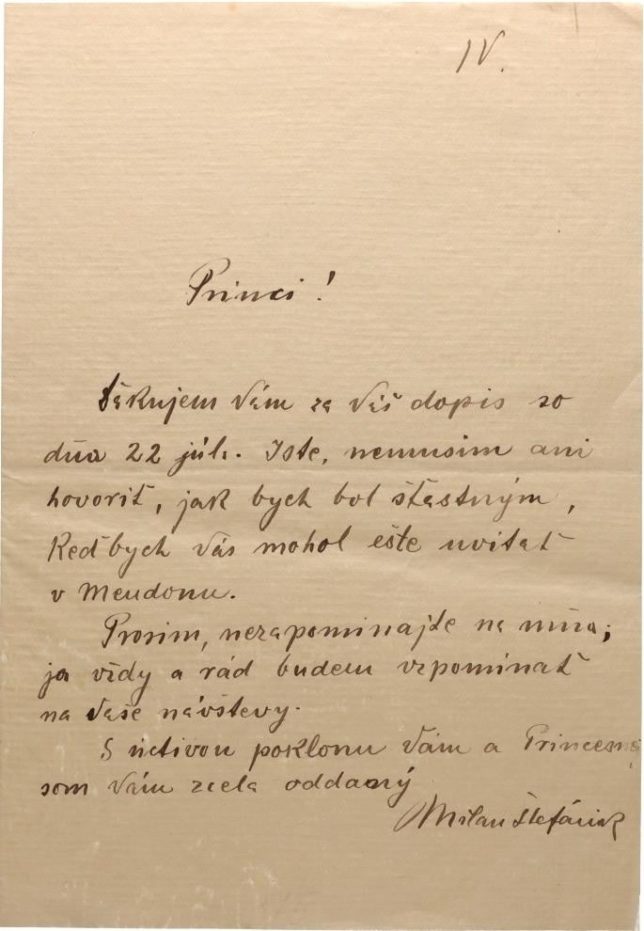 IV.
Princi!
Ďakujem Vám za Váš dopis zo
dňa 22 júla. Iste, nemusim ani
hovoriť, jak bych bol šťastným,
keďbych Vás mohol ešte uvitať
v Meudonu.
Prosim, nezapominajte na mňa;
ja vždy a rád budem vzpominať
na Vaše návštevy.
S úctivou poklonu Vám a Princezne
som Vám zcela oddaný
Milan Štefánik